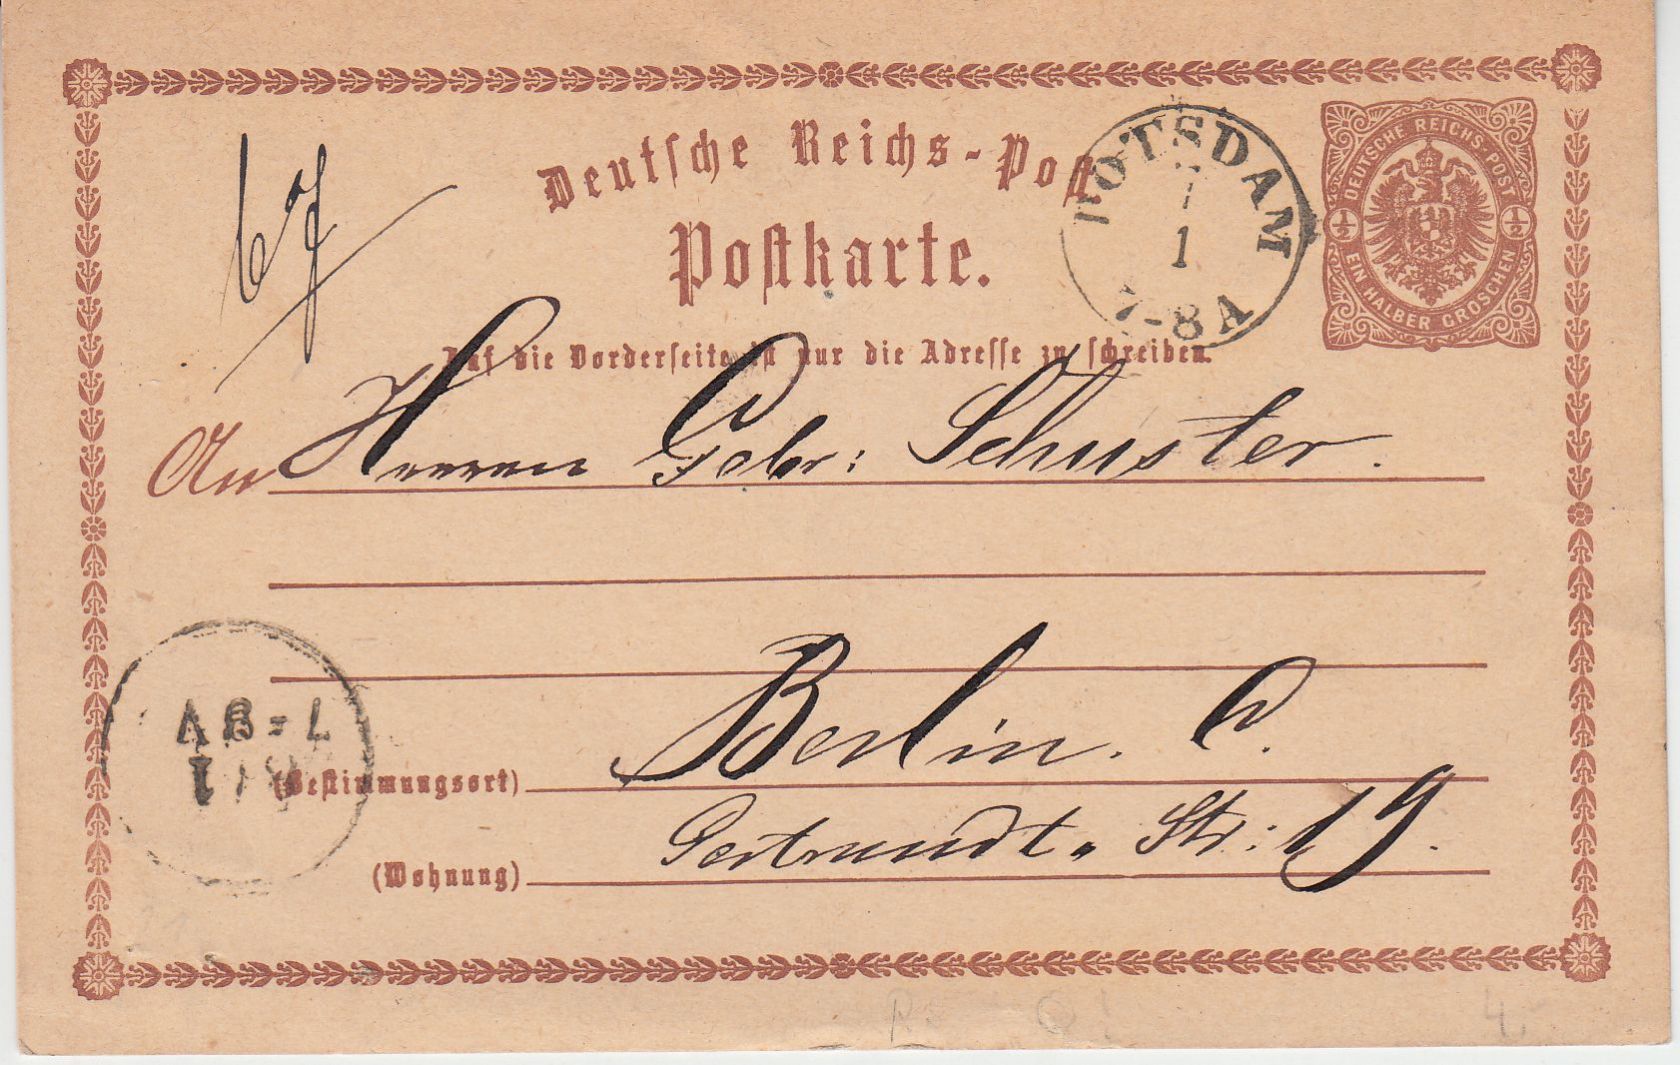 Deutsche Reichs-Post
Postkarte.
POTSDAM
1
7-8A
DEUTSCHE REICHS-POST
½ ½
EIN HALBER GROSCHEN
Auf die Vorderseite ist nur die Adresse zu schreiben.
An Herren Gebr: Schuster.
Berlin. C.
(Bestimmungsort)
Gertraudt. Str: 19.
(Wohnung)
4.-